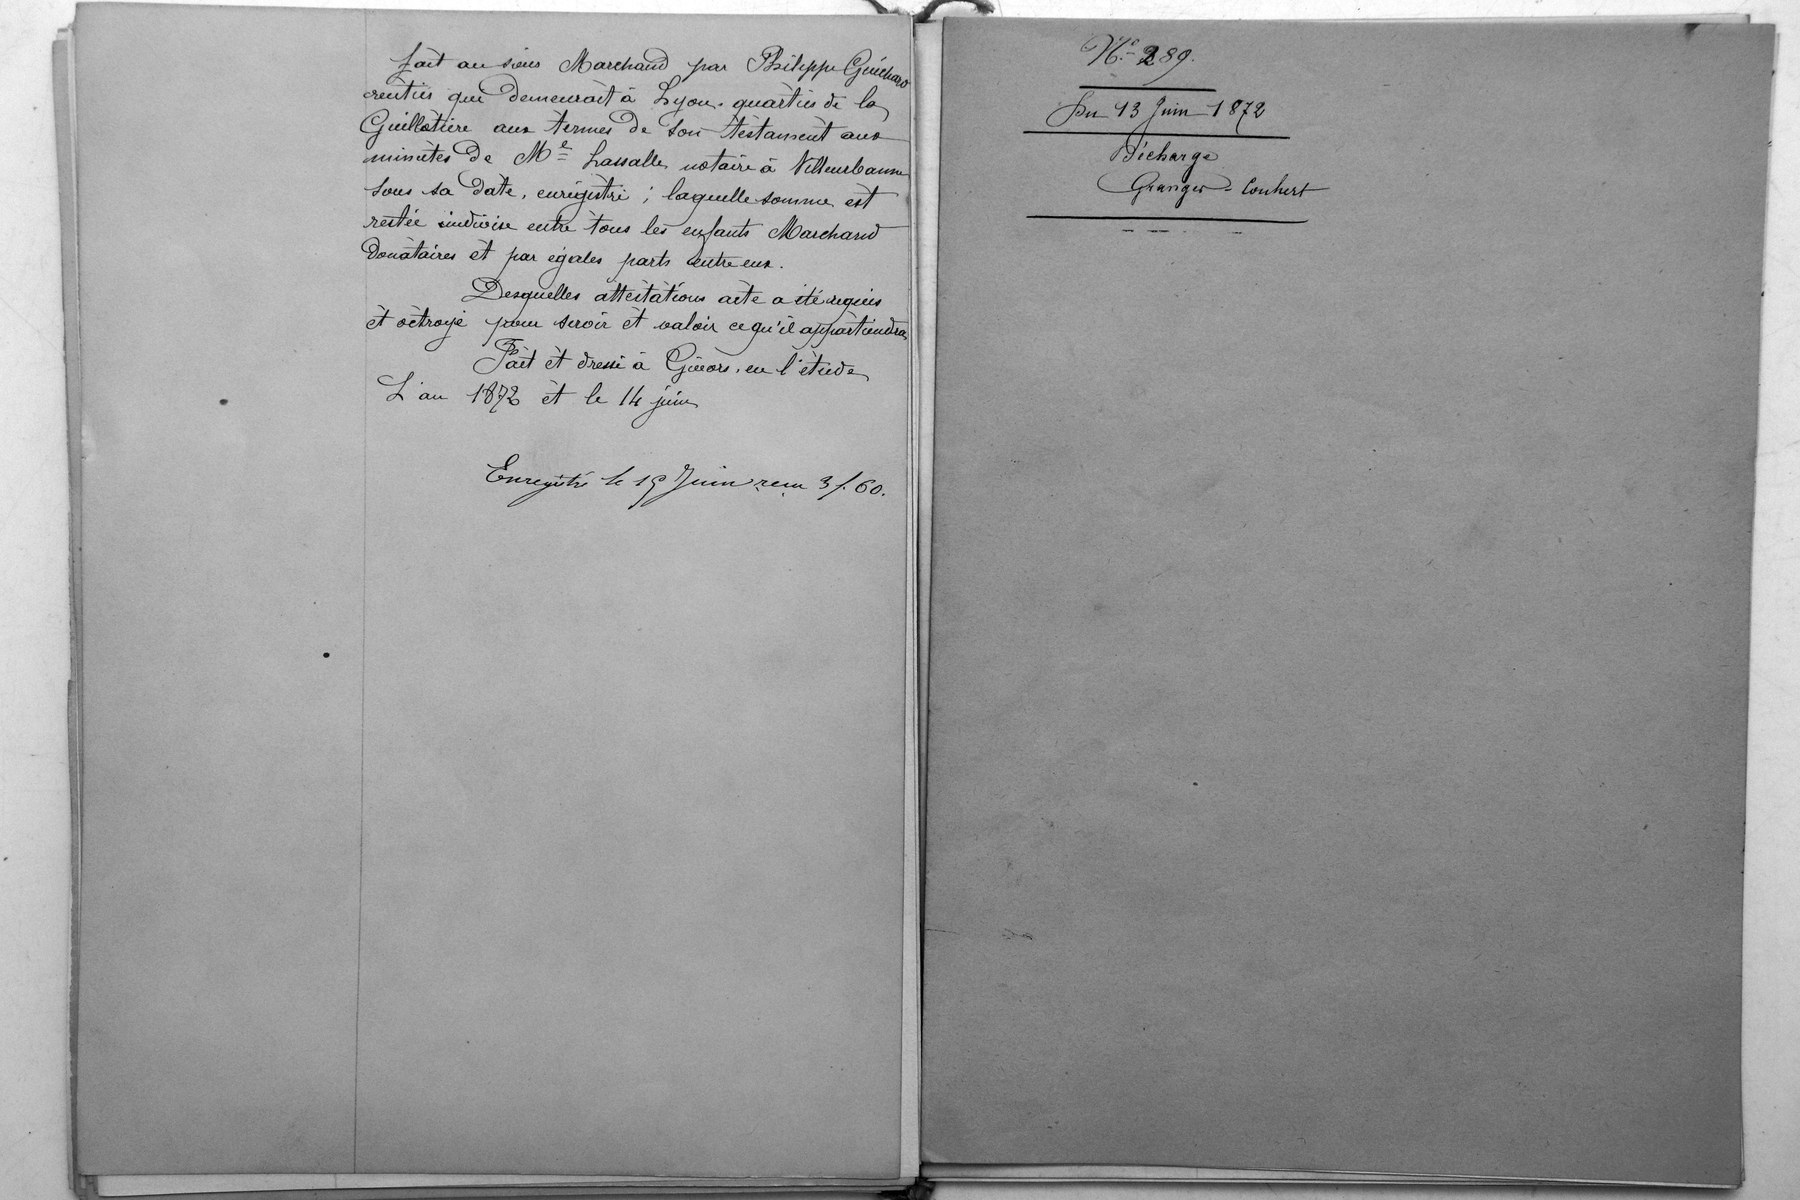 fait au sieur Marchand par Philippe Guichard
rentier qui demeurait à Lyon, quartier de la
Guillotière aux termes de son testament aux
minutes de Me Lassalle notaire à Villeurbanne
sous sa date, enregistré ; laquelle somme est
restée indivise entre tous les enfants Marchand
donataires et par égales parts entre eux.
Desquelles attestations acte a été requis
et octroyé pour servir et valoir ce qu'il appartiendra
Fait et dressé à Givors, en l'étude
L'an 1872 et le 14 juin
Enregistré le 19 Juin reçu 3 f. 60.
No 289.
Du 13 Juin 1872
Décharge
Granger - Couhert